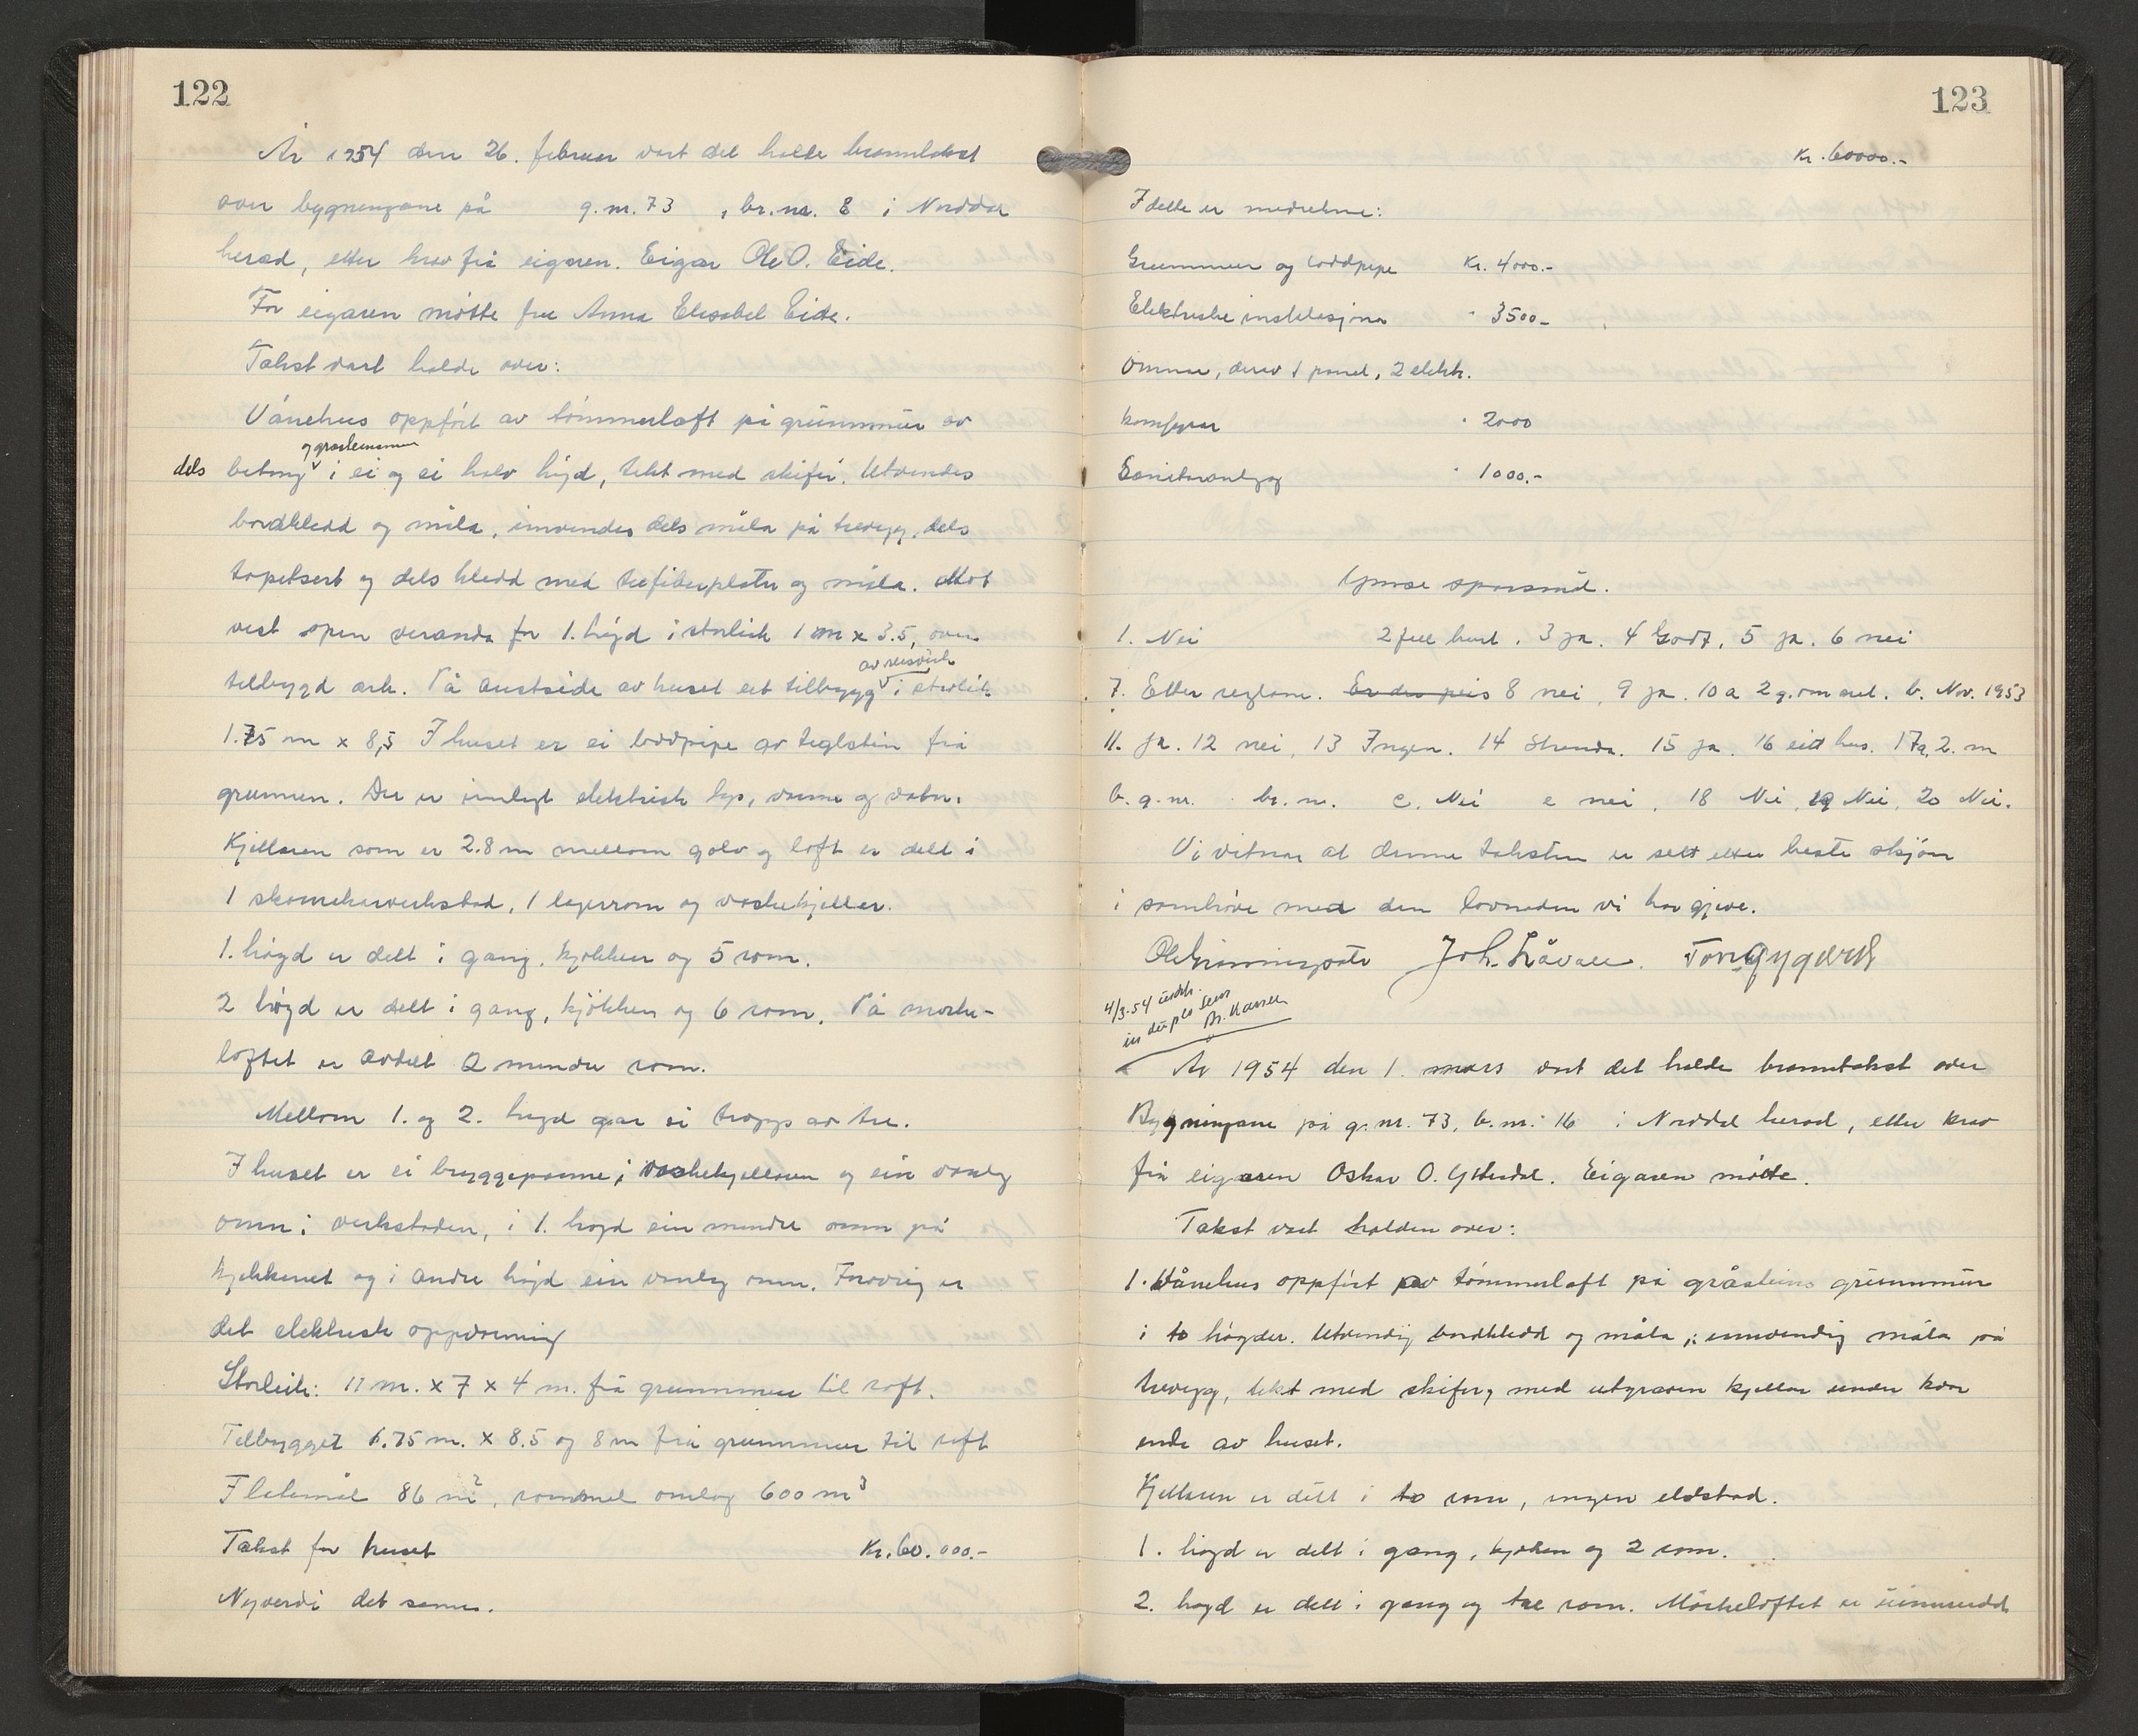 122
År 1954 den 26. februar vart det halde branntakst
over bygningane på g.nr. 73 , br.nr. 8 i Norddal
herad, etter krav frå eigaren. Eigar Ole O. Eide.
For eigaren møtte fru Anna Elisabet Eide.
Takst vart halde over:
Vånehus oppført av tømmerloft på grunnmur av
og gråsteinsmur
dels betong i ei og ei halv høgd, tekt med skifer. Utvendes
bordkledd og måla, innvendes dels måla på trevegg, dels
tapetsert og dels kledd med trefiberplater og måla. Mot
vest open veranda for 1. høgd i storleik 1 m x 3.5, over
av reisverk
tilbygd ark. På austside av huset eit tilbygg i storleik
1.75 m x 8,5 I huset er ei loddpipe av teglstein frå
grunnen. Der er innlegt elektrisk lys, varme og vatn.
Kjellaren som er 2.8 m mellom golv og loft er delt i
1 skomakerverkstad, 1 lagerrom og vaskekjeller.
1. høgd er delt i gang, kjøkken og 5 rom.
2 høgd er delt i gang, kjøkken og 6 rom. På mørke-
loftet er avdelt 2 mindre rom.
Mellom 1. og 2. høgd går ei tropp av tre.
I huset er ei bryggepanne i vaskekjellaren og ein vanleg
omn i verkstaden, i 1. høgd ein mindre omn på
kjøkkenet og i andre høgd ein vanleg omn. Forøvrig er
det elektrisk oppvarming
Storleik: 11 m. x 7 x 4 m. frå grunnmur til roft.
Tilbygget 1.75 m. x 8.5 og 8 m frå grunnmur til roft
Flatemål 86 m², rommål omlag 600 m³
Takst for huset Kr. 60.000.-
Nyverdi det same.
123
Kr. 60000.-
I dette er medrekna:
Grunnmur og loddpipe Kr. 4000.-
Elektriske installasjonar " 3500-
Omnar, derav 1 panel, 2 elektr.
komfyrar " 2000
Sanitæranlegg " 1000.-
Ymse spørsmål.
1. Nei 2 full hard. 3 ja. 4 Godt. 5 ja. 6 nei
7. Etter reglane. Er der peis 8 nei, 9 ja. 10 a 2 g. om året. b. Nov. 1953
11. ja. 12 nei, 13 Ingen. 14 Stranda. 15 ja. 16 eitt hus. 17a, 2. m
b. g.nr. br.nr. c. Nei e nei. 18 Nei, 19 Nei, 20 Nei.
Vi vitnar at denne taksten er sett etter beste skjøn
i samhøve med den lovnaden vi har gjeve.
Joh. Løvall.
4/3-54
År 1954 den 1. mars vart det halde branntakst over
Bygningane på g.nr. 73, b.nr. 16 i Norddal herad, etter krav
frå eigaren Oskar O. Ytterdal. Eigaren møtte.
Takst vart halden over:
1. Vånehus oppført av tømmerloft på gråsteins grunnmur
i to høgder. Utvendig bordkledd og måla, innvendig måla på
trevegg, tekt med skifer, med utgraven kjellar under kvar
ende av huset.
Kjellaren er delt i to rom, ingen eldstad.
1. høgd er delt i gang, kjøken og 2 rom.
2. høgd er delt i gang og tre rom. Mørkeloftet er uinnreidd